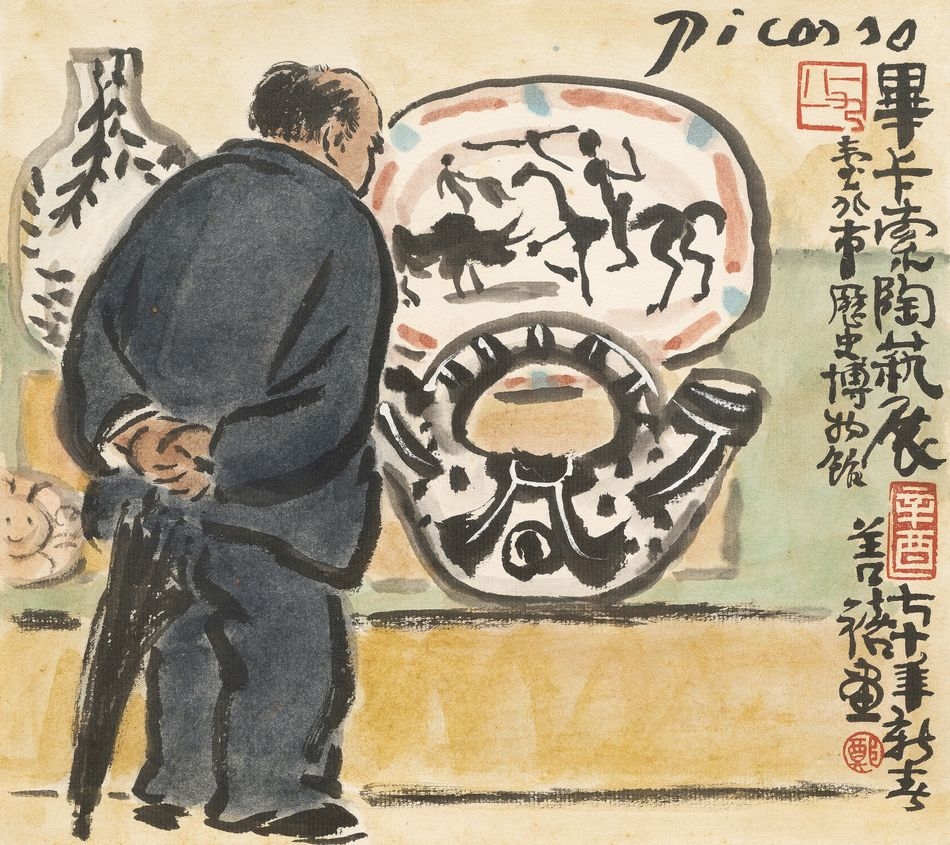 Picasso
畢卡索陶藝展
辛酉
七十年新春
北市歷史博物館
善禧畫
鄭